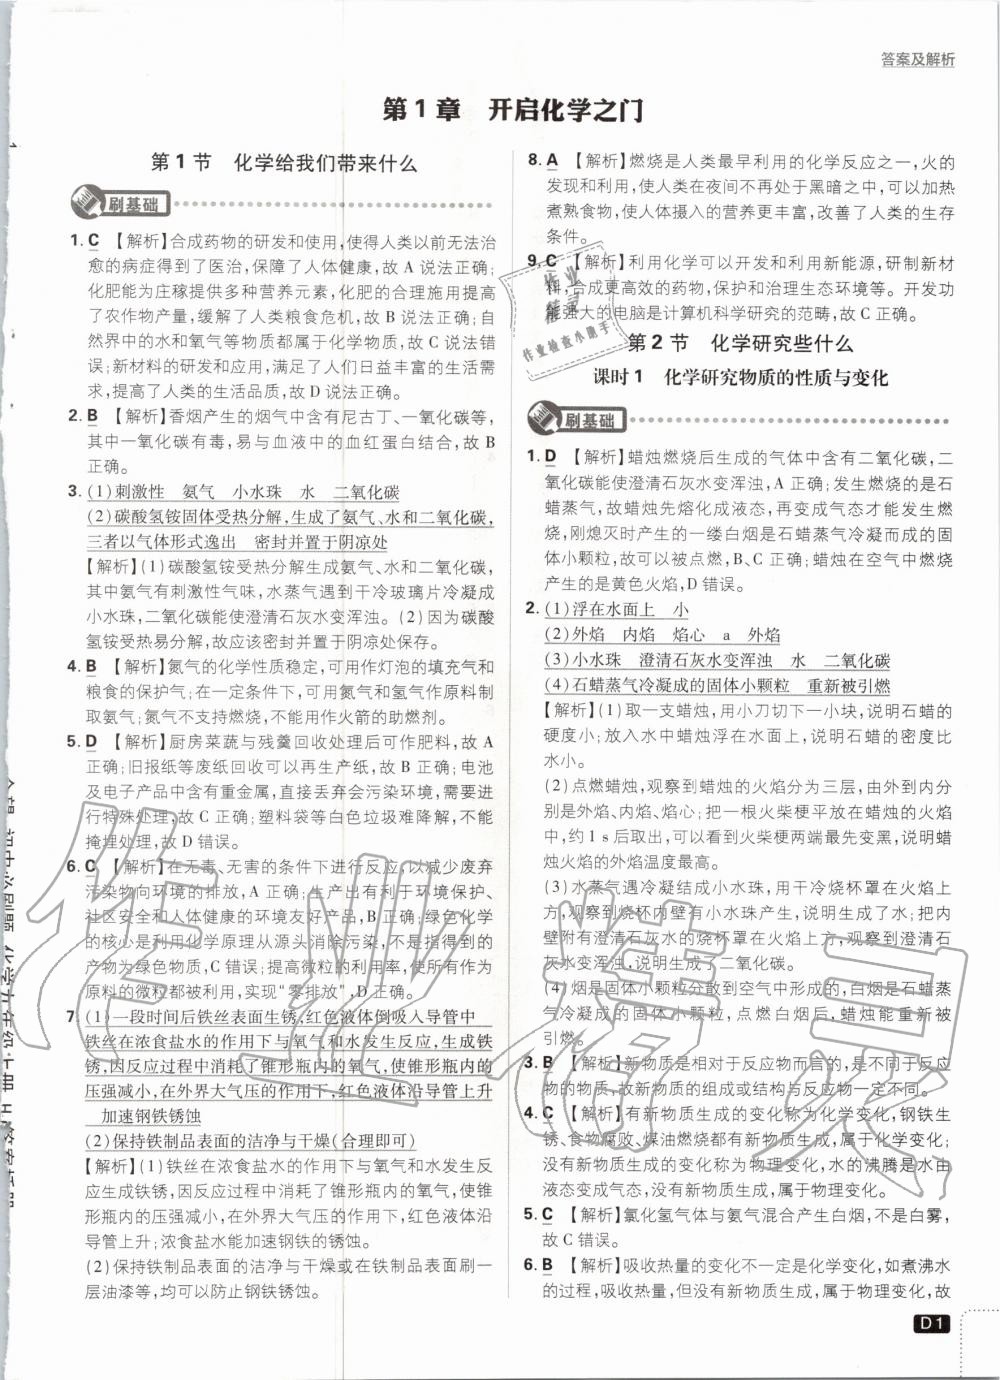 答案及解析
第1章 开启化学之门
第1节 化学给我们带来什么
刷基础
1. C 【解析】合成药物的研发和使用,使得人类以前无法治
愈的病症得到了医治,保障了人体健康,故 A 说法正确;
化肥能为庄稼提供多种营养元素,化肥的合理施用提高
了农作物产量,缓解了人类粮食危机,故 B 说法正确;自
然界中的水和氧气等物质都属于化学物质,故 C 说法错
误;新材料的研发和应用,满足了人们日益丰富的生活需
求,提高了人类的生活品质,故 D 说法正确。
2. B 【解析】香烟产生的烟气中含有尼古丁、一氧化碳等,
其中一氧化碳有毒,易与血液中的血红蛋白结合,故 B
正确。
3. (1)刺激性 氨气 小水珠 水 二氧化碳
(2)碳酸氢铵固体受热分解,生成了氨气、水和二氧化碳,
三者以气体形式逸出 密封并置于阴凉处
【解析】(1)碳酸氢铵受热分解生成氨气、水和二氧化碳,
其中氨气有刺激性气味,水蒸气遇到干冷玻璃片冷凝成
小水珠,二氧化碳能使澄清石灰水变浑浊。(2)因为碳酸
氢铵受热易分解,故应该密封并置于阴凉处保存。
4. B 【解析】氮气的化学性质稳定,可用作灯泡的填充气和
粮食的保护气;在一定条件下,可用氮气和氢气作原料制
取氨气;氮气不支持燃烧,不能用作火箭的助燃剂。
5. D 【解析】厨房菜蔬与残羹回收处理后可作肥料,故 A
正确;旧报纸等废纸回收可以再生产纸,故 B 正确;电池
及电子产品中含有重金属,直接丢弃会污染环境,需要进
行特殊处理,故 C 正确;塑料袋等白色垃圾难降解,不能
掩埋处理,故 D 错误。
6. C 【解析】在无毒、无害的条件下进行反应,以减少废弃
污染物向环境的排放,A 正确;生产出有利于环境保护、
社区安全和人体健康的环境友好产品,B 正确;绿色化学
的核心是利用化学原理从源头消除污染,不是指得到的
产物为绿色物质,C 错误;提高微粒的利用率,使所有作为
原料的微粒都被利用,实现“零排放”,D 正确。
7. (1)一段时间后铁丝表面生锈,红色液体倒吸入导管中
铁丝在浓食盐水的作用下与氧气和水发生反应,生成铁
锈,因反应过程中消耗了锥形瓶内的氧气,使锥形瓶内的
压强减小,在外界大气压的作用下,红色液体沿导管上升
加速钢铁锈蚀
(2)保持铁制品表面的洁净与干燥(合理即可)
【解析】(1)铁丝在浓食盐水的作用下与氧气和水发生反
应生成铁锈,因反应过程中消耗了锥形瓶内的氧气,使锥
形瓶内的压强减小,在外界大气压的作用下,红色液体沿
导管上升;浓食盐水能加速钢铁的锈蚀。
(2)保持铁制品表面的洁净与干燥或在铁制品表面刷一
层油漆等,均可以防止钢铁锈蚀。
8. A 【解析】燃烧是人类最早利用的化学反应之一,火的
发现和利用,使人类在夜间不再处于黑暗之中,可以加热
煮熟食物,使人体摄入的营养更丰富,改善了人类的生存
条件。
9. C 【解析】利用化学可以开发和利用新能源,研制新材
料,合成更高效的药物,保护和治理生态环境等。开发功
能强大的电脑是计算机科学研究的范畴,故 C 正确。
第2节 化学研究些什么
课时1 化学研究物质的性质与变化
刷基础
1. D 【解析】蜡烛燃烧后生成的气体中含有二氧化碳,二
氧化碳能使澄清石灰水变浑浊,A 正确;发生燃烧的是石
蜡蒸气,故石蜡先熔化成液态,再变成气态才能发生燃
烧,刚熄灭时产生的一缕白烟是石蜡蒸气冷凝而成的固
体小颗粒,故可以被点燃,B、C 正确;蜡烛在空气中燃烧
产生的是黄色火焰,D 错误。
2. (1)浮在水面上 小
(2)外焰 内焰 焰心 a 外焰
(3)小水珠 澄清石灰水变浑浊 水 二氧化碳
(4)石蜡蒸气冷凝成的固体小颗粒 重新被引燃
【解析】(1)取一支蜡烛,用小刀切下一小块,说明石蜡的
硬度小;放入水中蜡烛浮在水面上,说明石蜡的密度比
水小。
(2)点燃蜡烛,观察到蜡烛的火焰分为三层,由外到内分
别是外焰、内焰、焰心;把一根火柴梗平放在蜡烛的火焰
中,约 1 s 后取出,可以看到火柴梗两端最先变黑,说明蜡
烛火焰的外焰温度最高。
(3)水蒸气遇冷凝结成小水珠,用干冷烧杯罩在火焰上
方,观察到烧杯内壁有小水珠产生,说明生成了水;把内
壁附有澄清石灰水的烧杯罩在火焰上方,观察到澄清石
灰水变浑浊,说明生成了二氧化碳。
(4)烟是固体小颗粒分散到空气中形成的,白烟是石蜡蒸
气冷凝成的固体小颗粒,点燃白烟后,蜡烛能重新被
引燃。
3. B 【解析】新物质是相对于反应物而言的,是不同于反应
物的物质,故新物质的组成或结构与反应物一定不同。
4. C 【解析】有新物质生成的变化称为化学变化,钢铁生
锈、食物腐败、煤油燃烧都有新物质生成,属于化学变化;
没有新物质生成的变化称为物理变化,水的沸腾是水由
液态变成气态,没有新物质生成,属于物理变化。
5. C 【解析】氯化氢气体与氨气混合产生白烟,不是白雾,
故 C 错误。
6. B 【解析】吸收热量的变化不一定是化学变化,如煮沸水
的过程,吸收热量,但没有新物质生成,属于物理变化,故
D1
作业
精灵
作业检查小助手
作业精灵